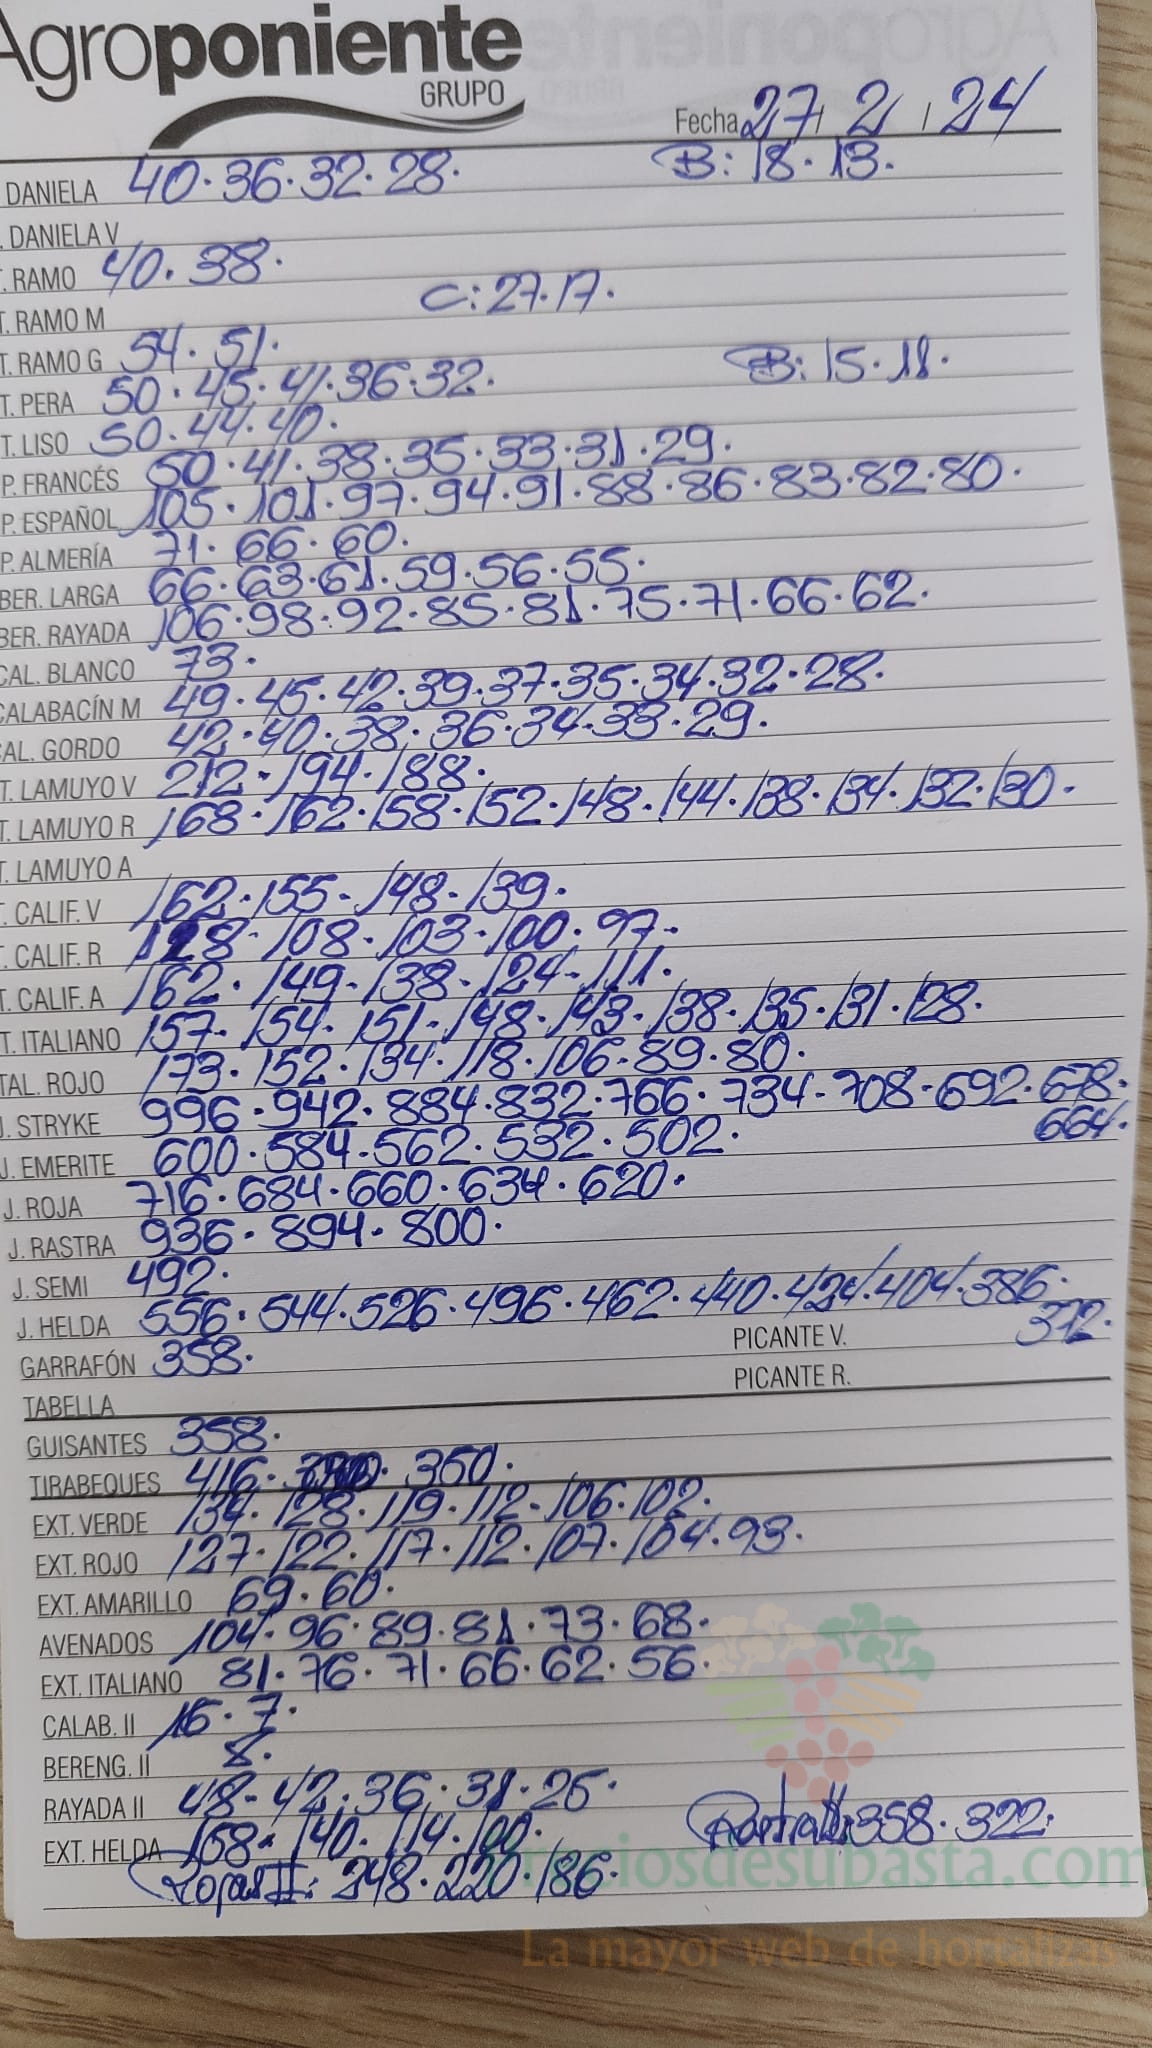 Agroponiente
GRUPO
Fecha 27 / 2 / 24
DANIELA 40.36.32.28. B: 18.13.
. DANIELA V
T. RAMO 40.38.
T. RAMO M C: 27.17.
T. RAMO G 54.51.
T. PERA 50.45.41.36.32. B: 15.11.
T. LISO 50.44.40.
P. FRANCÉS 50.41.38.35.33.31.29.
P. ESPAÑOL 105.101.97.94.91.88.86.83.82.80.
P. ALMERÍA 71.66.60.
BER. LARGA 66.63.61.59.56.55.
BER. RAYADA 106.98.92.85.81.75.71.66.62.
CAL. BLANCO 73.
CALABACÍN M 49.45.42.39.37.35.34.32.28.
CAL. GORDO 42.40.38.36.34.33.29.
T. LAMUYO V 212.194.188.
T. LAMUYO R 168.162.158.152.148.144.138.134.132.130.
T. LAMUYO A
T. CALIF. V 162.155.148.139.
T. CALIF. R 128.108.103.100.97.
T. CALIF. A 162.149.138.124.111.
T. ITALIANO 157.154.151.148.143.138.135.131.128.
TAL. ROJO 173.152.134.118.106.89.80.
J. STRYKE 996.942.884.832.766.734.708.692.678.
664.
J. EMERITE 600.584.562.532.502.
J. ROJA 716.684.660.634.620.
J. RASTRA 936.894.800.
J. SEMI 492.
J. HELDA 556.544.526.496.462.440.424.404.386.
372.
GARRAFÓN 358. PICANTE V.
TABELLA PICANTE R.
GUISANTES 358.
TIRABEQUES 416. 350.
EXT. VERDE 134.128.119.112.106.102.
EXT. ROJO 127.122.117.112.107.104.93.
EXT. AMARILLO 69.60.
AVENADOS 104.96.89.81.73.68.
EXT. ITALIANO 81.76.71.66.62.56.
CALAB. II 16.7.
BERENG. II 8.
RAYADA II 48.42.36.31.25.
EXT. HELDA 158.140.114.100. Rastra II: 358.322.
Rojas II: 248.220.186.
preciosdesubasta.com
La mayor web de hortalizas